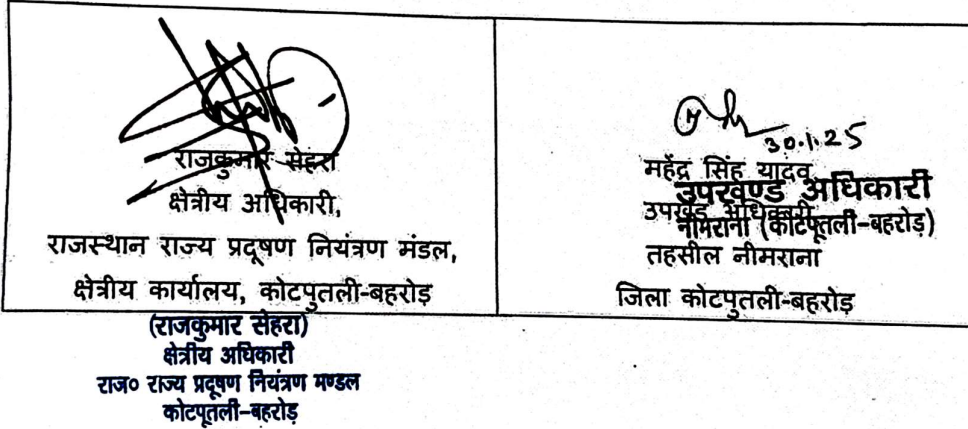 राजकुमार सेहरा
क्षेत्रीय अधिकारी,
राजस्थान राज्य प्रदूषण नियंत्रण मंडल,
क्षेत्रीय कार्यालय, कोटपुतली-बहरोड़
(राजकुमार सेहरा)
क्षेत्रीय अधिकारी
राज० राज्य प्रदूषण नियंत्रण मण्डल
कोटपूतली-बहरोड़
30.1.25
महेंद्र सिंह यादव
उपखण्ड अधिकारी
उपखंड अधिकारी
नीमराना (कोटपूतली-बहरोड़)
तहसील नीमराना
जिला कोटपुतली-बहरोड़